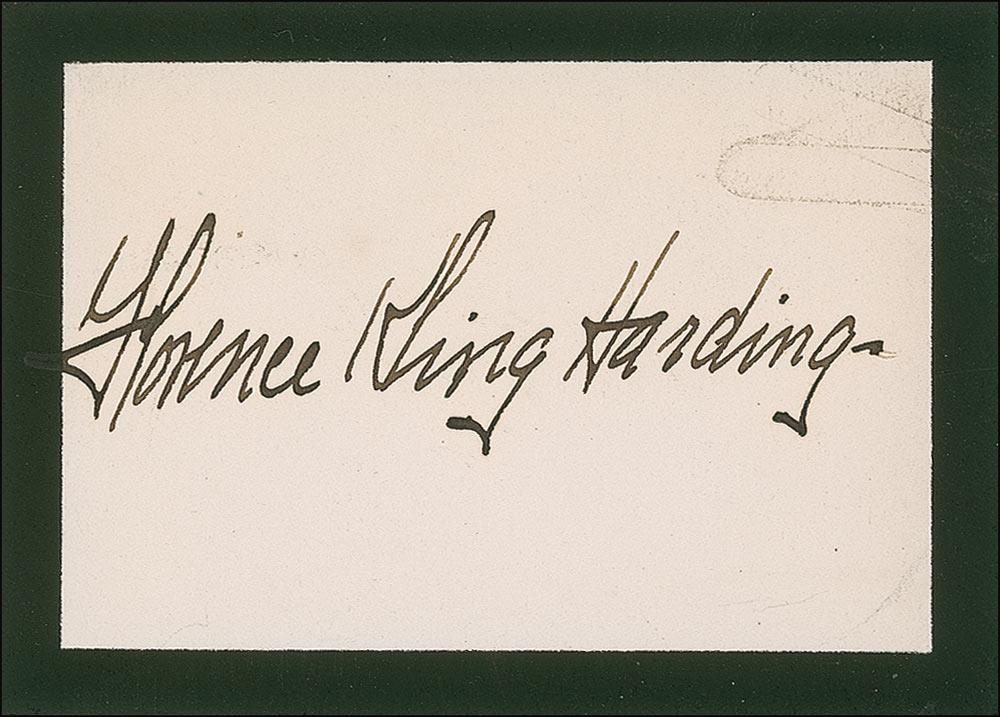 Florence Kling Harding-